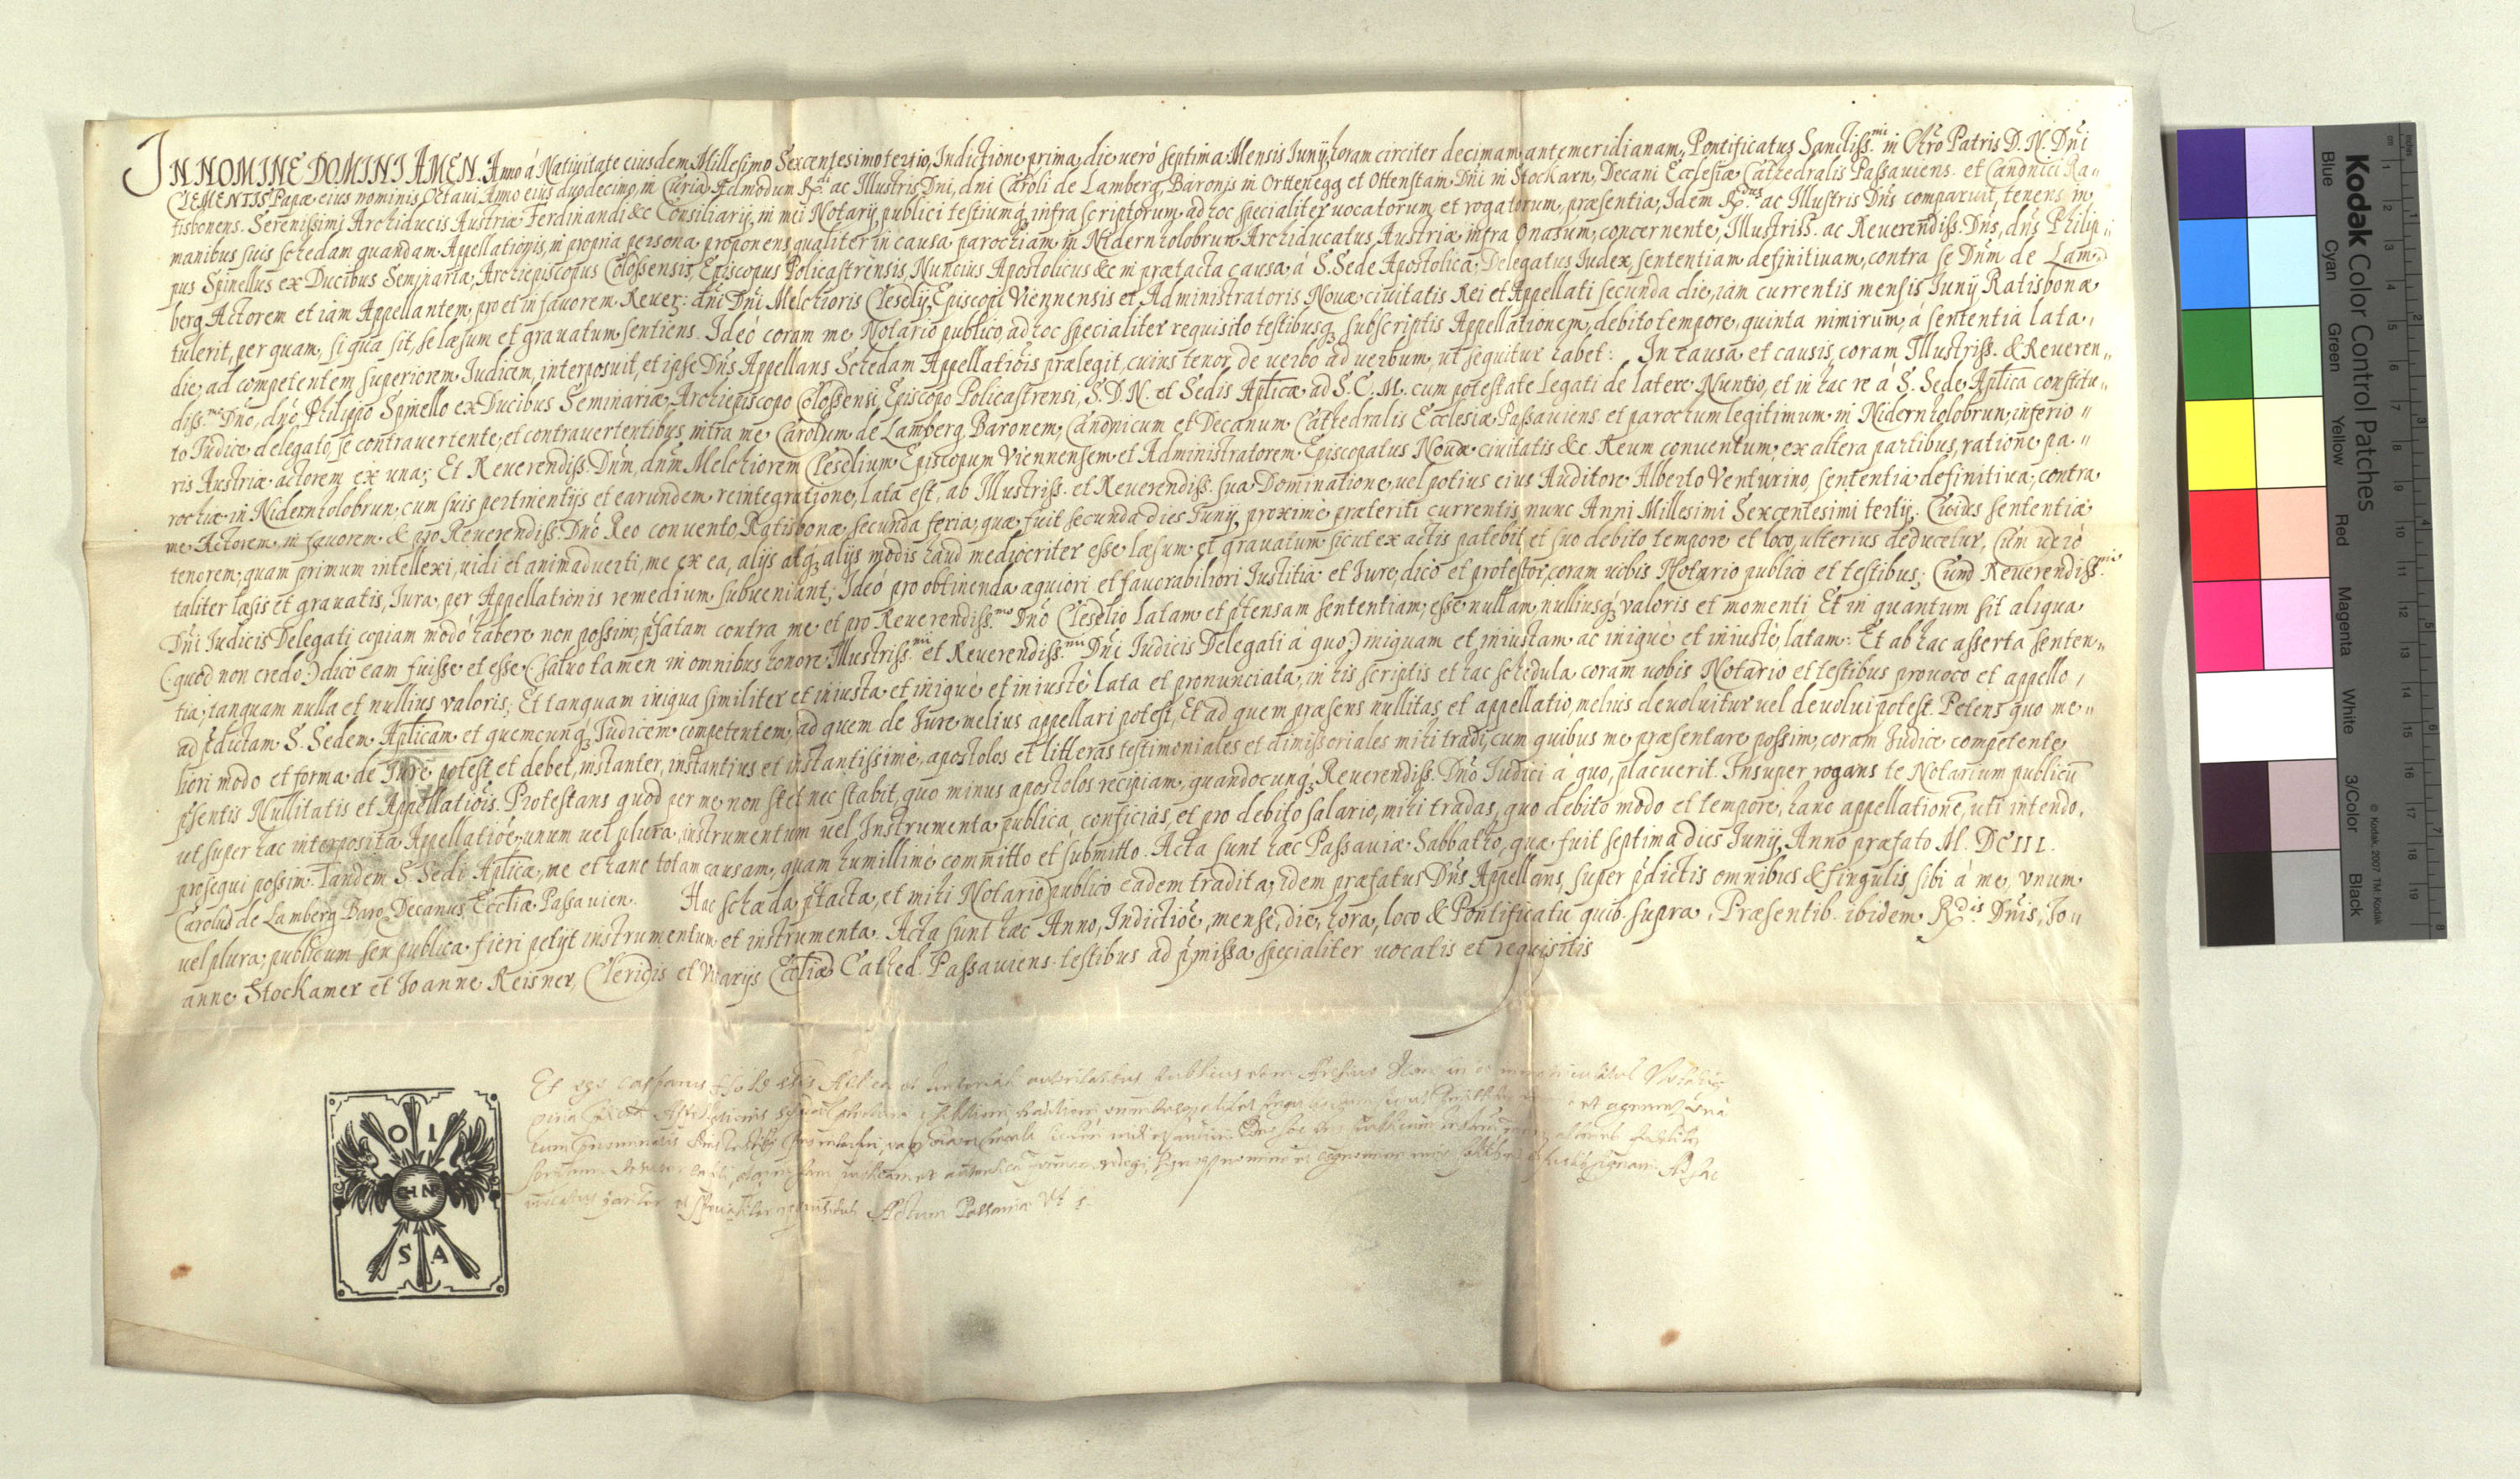 IN NOMINE DOMINI AMEN. Anno á Natiuitate eiusdem Millesimo Sexcentesimo tertio, Indictione prima, die veró septima Mensis Iunij, horam circiter decimam antemeridianam, Pontificatus Sanctiss.mi in Chro Patris D. N. Dni
CLEMENTIS Papæ eius nominis Octaui Anno eius duodecimo, in Curia Admodum Rdi ac Illustris Dni, dni Caroli de Lamberg, Baronis in Orttenegg et Ottenstam Dni in Stockarn, Decani Ecclesiæ Cathedralis Passauiens. et Canonici Ra-
tisbonens. Serenissimi Archiducis Austriæ Ferdinandi &c Consiliarij, in mei Notarij publici testiumq; infra scriptorum, ad hoc specialiter uocatorum et rogatorum, præsentia, Idem Rdus ac Illustris Dns comparuit, tenens in
manibus suis schedam quandam Appellationis, in propria persona proponens qualiter in causa parochiam in Nidernholobrun Archiducatus Austriæ infra Onasum, concernente, Illustriss. ac Reuerendiss. Dns, dns Philip-
pus Spinellus ex Ducibus Seminariæ, Archiepiscopus Colossensis, Episcopus Policastrensis, Nuncius Apostolicus &c in prætacta causa á S. Sede Apostolica, Delegatus Iudex, sententiam definitiuam, contra se Dnm de Lam-
berg Actorem et iam Appellantem, pro et in fauorem Reuer: dni Dni Melchioris Cleselij, Episcopi Viennensis et Administratoris Nouæ ciuitatis Rei et Appellati secunda die, iam currentis mensis Iunij Ratisbonæ
tulerit, per quam, si qua sit, se læsum et grauatum sentiens. Ideó coram me Notario publico, ad hoc specialiter requisito testibusq; subscriptis Appellationem, debito tempore, quinta nimirum, á sententia lata,
die, ad competentem superiorem Iudicem, interposuit, et ipse Dns Appellans Schedam Appellationis prælegit, cuius tenor, de uerbo ad uerbum, ut sequitur habet: In causa et causis, coram Illustriss. & Reueren-
diss.mo Dno, dno Philippo Spinello ex Ducibus Seminariæ, Archiepiscopo Colossensi, Episcopo Policastrensi, S. D. N. et Sedis Aplicæ ad S. C. M. cum potestate Legati de latere Nuntio, et in hac re á S. Sede Aplica constitu-
to Iudice delegato, se contrauertente, et contrauertentibus, intra me Carolum de Lamberg Baronem, Canonicum et Decanum Cathedralis Ecclesiæ Passauiens. et parochum legitimum in Nidernholobrun, inferio-
ris Austriæ actorem ex una; Et Reuerendiss. Dnm, dnm Melchiorem Cleselium Episcopum Viennensem et Administratorem Episcopatus Nouæ ciuitatis &c. Reum conuentum, ex altera partibus, ratione pa-
rochiæ in Nidernholobrun, cum suis pertinentijs et earundem reintegratione, lata est, ab Illustriss. et Reuerendiss. sua Dominatione, uel potius eius Auditore Alberto Venturino, sententia definitiua, contra
me Actorem, in fauorem & pro Reuerendiss. Dno Reo conuento, Ratisbonæ secunda feria, quæ fuit secunda dies Iunij, proximè præteriti currentis nunc Anni Millesimi Sexcentesimi tertij. Cuius sententiæ
tenorem, quam primum intellexi, uidi et animaduerti, me ex ea, alijs atq; alijs modis haud mediocriter esse læsum et grauatum, sicut ex actis patebit et suo debito tempore et loco, ulterius deducetur, Cum ueró
taliter læsis et grauatis, Iura, per Appellationis remedium subueniant; Ideó pro obtinenda æquiori et fauorabiliori Iustitia et Iure, dico et protestor, coram uobis Notario publico et testibus; Cum Reuerendiss.mi
Dni Iudicis Delegati copiam modó habere non possim, pfatam contra me et pro Reuerendiss.mo Dno Cleselio latam et ptensam sententiam, esse nullam, nulliusq; valoris et momenti Et in quantum sit aliqua
(quod non credo) dico eam fuisse et esse (saluo tamen in omnibus honore Illustriss.mi et Reuerendiss.mi Dni Iudicis Delegati á quo) iniquam et iniustam ac iniquè et iniustè, latam: Et ab hac asserta senten-
tia, tanquam nulla et nullius valoris; Et tanquam iniqua similiter et iniusta et iniquè et iniustè lata et pronunciata, in his scriptis et hac schedula coram uobis Notario et testibus prouoco et appello,
ad pdictam S. Sedem Aplicam et quemcunq; Iudicem competentem, ad quem de Iure melius appellari potest, Et ad quem præsens nullitas et appellatio, melius deuoluitur uel deuolui potest. Petens quo me-
liori modo et forma de Iure potest et debet, instanter, instantius et instantissimè, apostolos et litteras testimoniales et dimissoriales mihi tradi, cum quibus me præsentare possim, coram Iudice competente
psentis Nullitatis et Appellationis. Protestans quod per me non stet nec stabit, quo minus apostolos recipiam, quandocunq; Reuerendiss. Dno Iudici á quo, placuerit. Insuper rogans te Notarium publicu
ut super hac interposita Appellatioe, unum uel plura, instrumentum uel Instrumenta publica, conficias, et pro debito salario, mihi tradas, quo debito modo et tempore, hanc appellatione, uti intendo,
prosequi possim. Tandem S. Sedi Aplicæ, me et hanc totam causam, quam humillimè committo et submitto. Acta sunt hæc Passauiæ Sabbatho, quæ fuit septima dies Iunij, Anno præfato M. DCIII.
Carolus de Lamberg Baro, Decanus Eccliæ Passauien. Hac scheda ptacta, et mihi Notario publico eadem tradita, idem præfatus Dns Appellans, super pdictis omnibus & singulis, sibi á me, vnum
uel plura, publicum seu publica fieri petijt instrumentum et instrumenta. Acta sunt hæc Anno, Indictioe, mense, die, hora, loco & Pontificatu quib. supra, Præsentib. ibidem Rdis Dnis, Jo-
anne Stockamer et Joanne Reisner, Clericis et Vicarijs Eccliæ Cathed. Passauiens. testibus ad pmissa specialiter uocatis et requisitis
Et ego
Actum Passauiæ Vt s.
O I
CHNS
S A
Kodak Color Control Patches
Blue Cyan Green Yellow Red Magenta White 3/Color Black
© Kodak, 2007 TM: Kodak